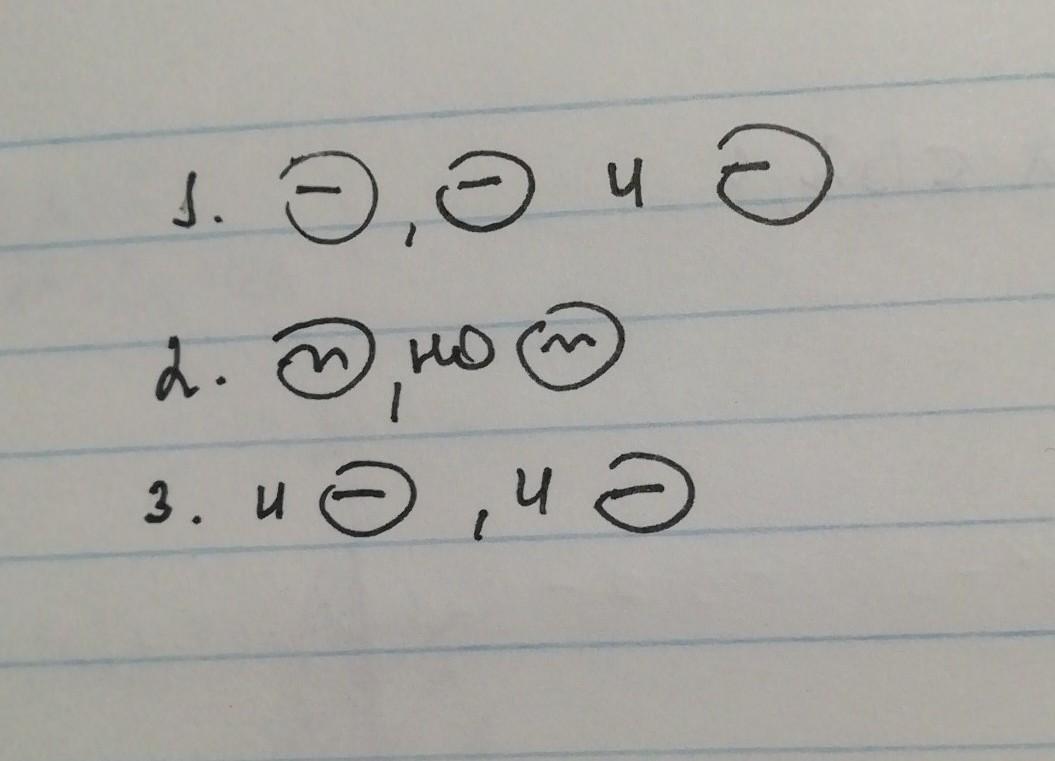 1. ⊖, ⊖ и ⊖
2. ⓜ, но ⓜ
3. и ⊖, и ⊖